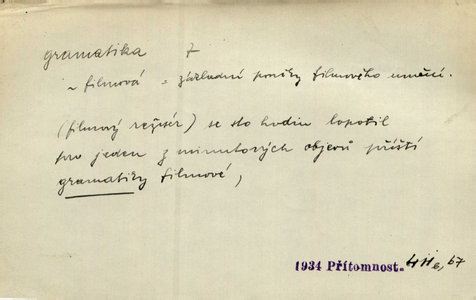 gramatika f
~ filmová = základní prvky filmového umění.
(filmový režisér) se sto hodin lopotil
pro jeden z minutových objevů příští
gramatiky filmové,
1934 Přítomnost. 11, 67